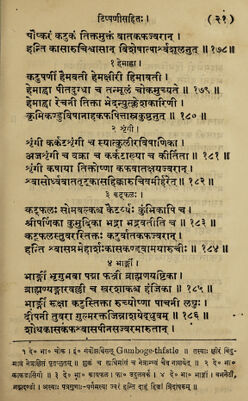 टिप्पणीसहितः।
(२१)
चोष्करं कटुकं तिक्तमुक्तं वातकफज्वरान्।
हन्ति कासारुचिश्वासान् विशेषात्पार्श्वशूलनुत्॥ १७८॥
१ हेमाह्वा
कटुपर्णी हैमवती हेमक्षीरी हिमावती।
हेमाह्वा पीतदुग्धा च तन्मूलं चोकमुच्यते॥ १७९॥
हेमाह्वा रेचनी तिक्ता भेदन्युत्क्लेशकारिणी।
कृमिकण्डुविषानाहकफपित्तास्रकुष्ठनुत्॥ १८०॥
२ शृंगी।
शृंगी कर्कटशृंगी च स्यात्कुलीरविषाणिका।
अजशृंगी च वक्रा च कर्कटाख्या च कीर्तिता॥ १८१॥
शृंगी कषाया तिक्तोष्णा कफवातक्षयज्वरान्।
श्वासोर्ध्ववाततृट्कासहिक्कारुचिवमीन्हरेत्॥ १८२॥
३ कट्फलः।
कट्फलः सोमवल्कश्च कैटर्यः कुंभिकापि च।
श्रीपर्णिका कुमुदिका भद्रा भद्रवतीति च॥ १८३॥
कट्फलस्तुवरस्तिक्तः कटुर्वातकफज्वरान्।
हन्ति श्वासप्रमेहार्शःकासकण्ठामयारुचीः॥ १८४॥
४ भार्ङ्गी
भार्ङ्गी भृगुभवा पद्मा फञ्जी ब्राह्मणयष्टिका।
ब्राह्मण्यङ्गारवल्ली च खरशाकश्च हंजिका॥ १८५॥
भार्ङ्गी रूक्षा कटुस्तिक्ता रुच्योष्णा पाचनी लघुः।
दीपनी तुवरा गुल्मरक्तजिन्नाशयेद्ध्रुवम्॥ १८६॥
शोथकासकफश्वासपीनसज्वरमारुतान्।
१ दे० भा० चोक। इं० Gamboge-thfstie